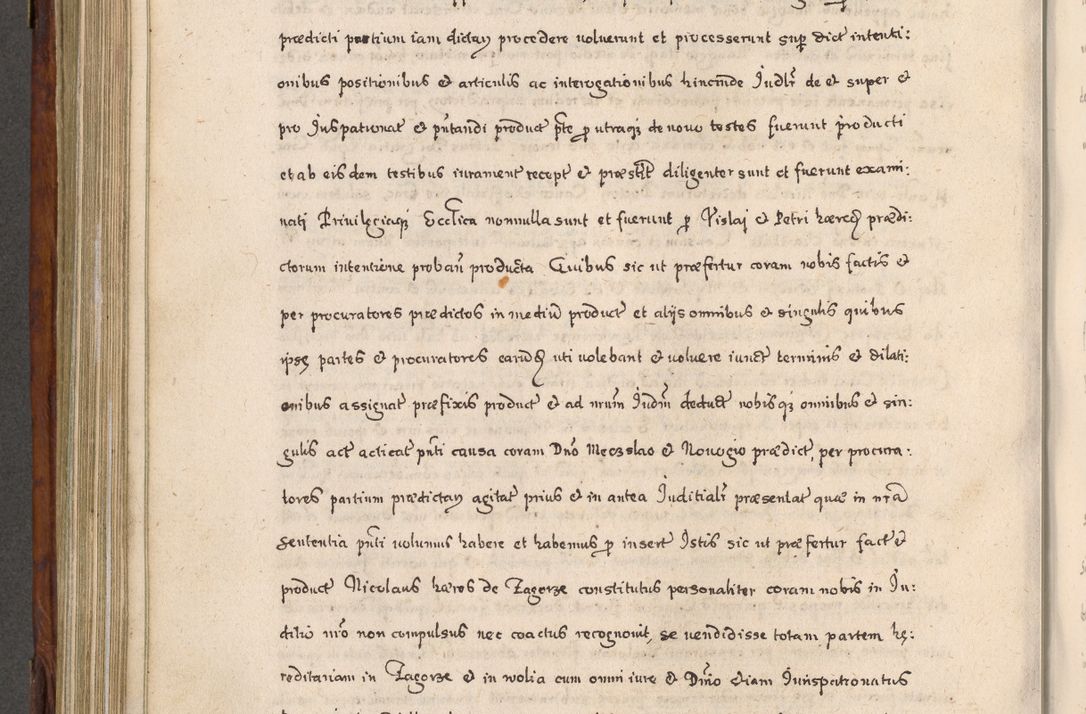 prædicti partium iam dictaꝝ procedere voluerunt et processerunt suꝑ dict intenti:
onibus positionibus & articulis ac interogationibus hincinde Iudlr̄ de et super &
pro Iuspatronat & pn̄tandi product pte ꝑ utraqꝫ de novo testes fuerunt producti
et ab eisdem testibus iurament recept & præstit diligenter sunt et fuerunt exami:
nati Privilegiaqꝫ Ecclica nonnulla sunt et fuerunt ꝑ Vislaj & Petri hæred prædi:
ctorum intentione proban producta Quibus sic ut præfertur coram nobis factis &
per procuratores prædictos in mediū product et alijs omnibus & singulis quibus
ipsę partes & procuratores earūdꝫ uti volebant & voluere iunct terminis & dilati:
onibus assignat præfixis product & ad nrūm Iudm deduct nobisqꝫ omnibus & sin:
gulis act acticat pn̄ti causa coram Dno Męczslao & Novogio prædict, per procura:
tores partium prædictaꝝ agitat prius & in antea Iuditialr̄ præsentat quæ in nr̄a
Sententia pn̄ti volumus habere et habemus ꝑ insert Istis sic ut præfertur fact &
product Nicolaus hæres de Zagorze constitutus personaliter coram nobis in Iu:
ditio nr̄o non compulsus nec coactus recognovit, se vendidisse totam partem hę:
reditariam in Zagorze & in wolia cum omni iure & Dn̄io etiam Iurispatronatus